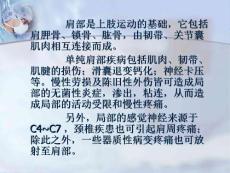 肩部是上肢运动的基础，它包括
肩胛骨、锁骨、肱骨，由韧带、关节囊
肌肉相互连接而成。
单纯肩部疾病包括肌肉、韧带、
肌腱的损伤；滑囊退变钙化；神经卡压
等。慢性劳损及陈旧性外伤皆可造成局
部的无菌性炎症，渗出，粘连，从而造
成局部的活动受限和慢性疼痛。
另外，局部的感觉神经来源于
C4~C7，颈椎疾患也可引起肩周疼痛；
除此之外，一些器质性病变疼痛也可放
射至肩部。